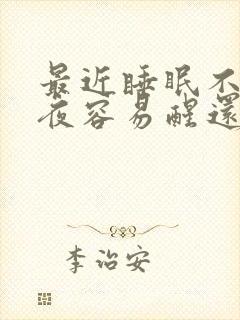 最近睡眠不
夜容易醒還
李治安